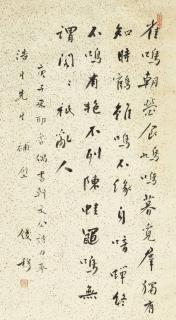 雀鳴朝營食鳩鳴暮覓羣獨有
知時鶴雖鳴不緣身喑蟬終
不鳴有抱不列陳蛙黽鳴無
謂閣閣祇亂人
庚子偶書韓文公詩以奉
浩生先生補壁